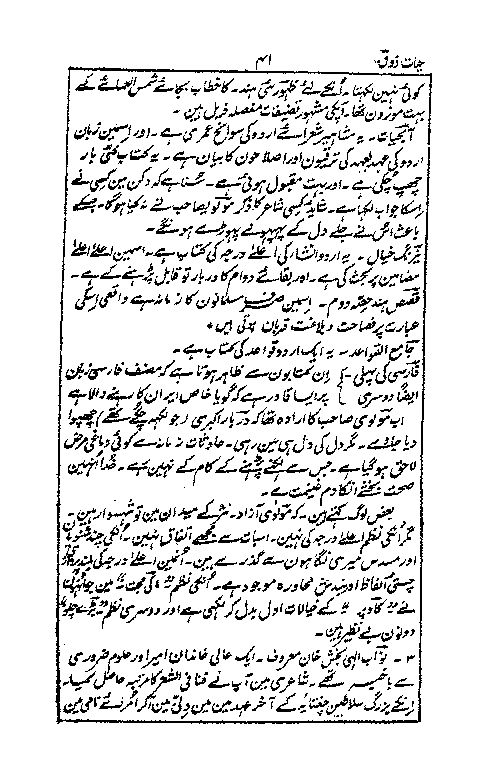 حیات ذوق
۴۱
کوئی نہین لکھتا۔ اُنکے لئے ظہوری ہند۔ کا خطاب بجائے شمس العلمائے کے
بہت موزون تھا۔ آپکی مشہور تصنیفات مفصلہ ذیل ہین۔
آبحیات۔ یہ مشاہیر شعرائے اردو کی سوانح عمری ہے۔ اور اسمین زبان
اردو کی عہد بعہد کی ترقیون اور اصلاحون کا بیان ہے۔ یہ کتاب کئی بار
چھپ چکی ہے۔ اور بہت مقبول ہوئی ہے۔ سُنا ہے کہ دکن مین کسی نے
اِسکا جواب لکھا ہے۔ شاید کسی شاعر کا ذکر مولویصاحب نے نہ کیا ہوگا۔ جسکے
باعث اُس نے جلے دل کے پھپھولے پھوڑے ہونگے۔
نیرنگ خیال۔ یہ اردو انشار کی اعلےٰ درجہ کی کتاب ہے۔ اسمین اعلےٰ اعلےٰ
مضامین پر بحث کی ہے۔ اور بقائے دوام کا دربار تو قابل پڑہنے کے ہے۔
قصص ہند حصّہ دوم۔ اسمین صرف مسلمانون کا زمانہ ہے واقعی اِسکی
عبارت پر فصاحت و بلاغت قربان ہوئی ہین
جامع القواعد۔ یہ ایک اردو قواعد کی کتاب ہے۔
فارسی کی پہلی۔ } اِن کتابون سے ظاہر ہوتا ہے کہ مصنف فارسی زبان
ایضاً دوسری } پر ایسا قادر ہے کہ گویا خاص ایران کا رہنے والا ہے
اب مولوی صاحب کا ارادہ تھا کہ دربار اکبری (جو لکھ چکے تھے) چھپوا
دیا جائے۔ مگر دل کی دل ہی مین رہی۔ حادثات زمانہ سے کوئی دماغی مرض
لاحق ہوگیا ہے۔ جس سے لکھنے پڑہنے کے کام کے نہین رہے۔ خُدا اُنہین
صحت بخشے اُنکا دم غنیمت ہے۔
بعض لوگ کہتے ہین۔ کہ مولوی آزاد۔ نثر کے میدان مین تو شہسوار ہین۔
مگر اُنکی نظم اعلےٰ درجہ کی نہین۔ اسبات سے مجھے اتفاق نہین۔ اُنکی چند مثنویان
اور مسدس میری نگاہون سے گذرے ہین۔ اُنمین اعلےٰ درجہ کی بلند پروازی
چستی الفاظ اور بندش محاورہ موجود ہے۔ اُنکی نظم
کے خیالات ادل بدل کر لکھی ہے اور دوسری نظم
دونون بے نظیر ہین۔
۳۔ نوّاب الٰہی بخش خان معروف۔ ایک عالی خاندان امیر اور علوم ضروری سے
باخبر تھے۔ شاعری مین آپ نے فنا فی الشعر کا مرتبہ حاصل کیا۔
اِنکے بزرگ سلاطین چغتائیہ کے آخر عہد مین دلی مین آکر اُمرائے نامی مین